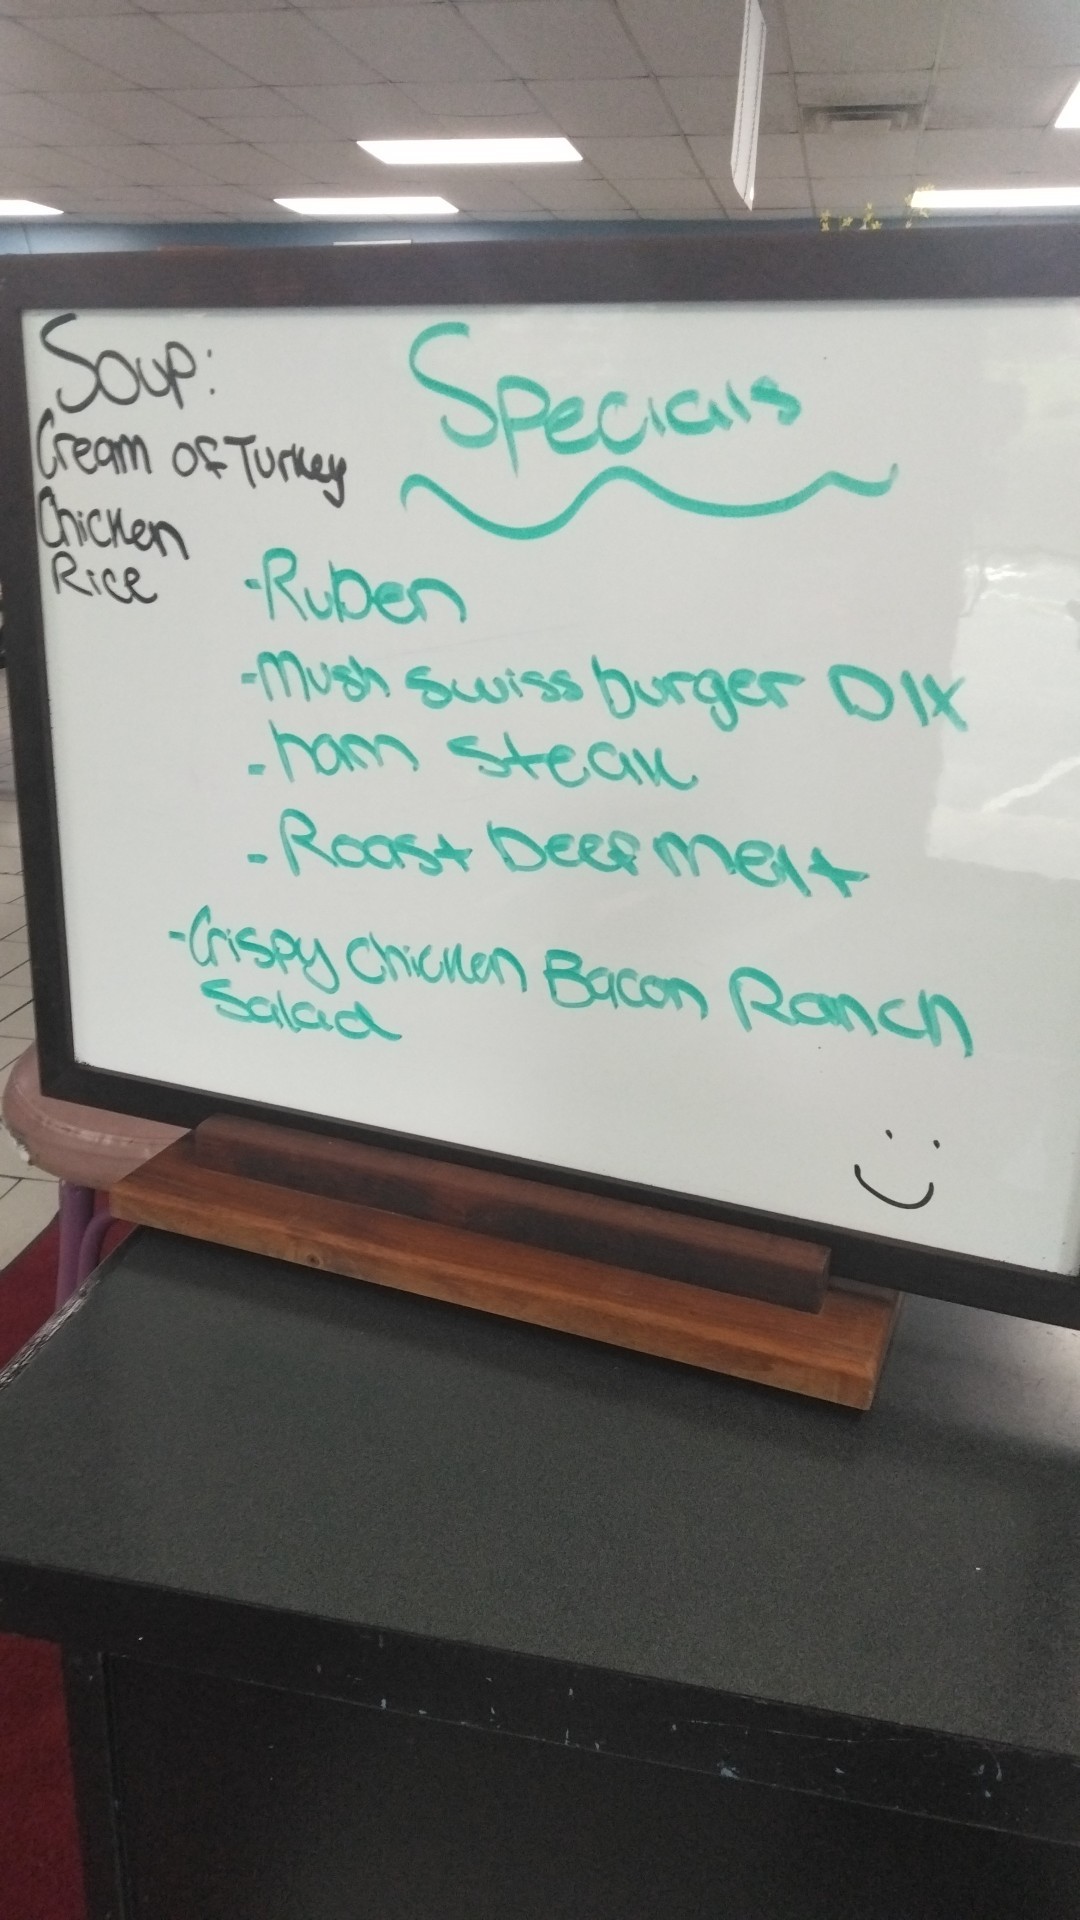 Soup:
Cream of Turkey
Chicken
Rice
Specials
-Ruben
-Mush swiss burger Dlx
-ham steak
-Roast beef melt
-Crispy Chicken Bacon Ranch
Salad